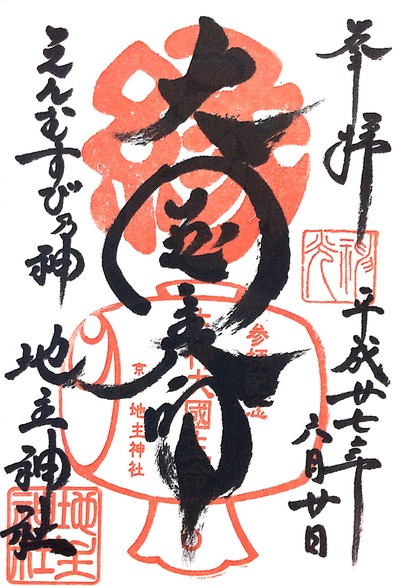 奉拝
平成廿七年
六月廿日
縁
大國主命
参拝記念
大國主命
京 地主神社
えんむすびの神
地主神社
地主神社